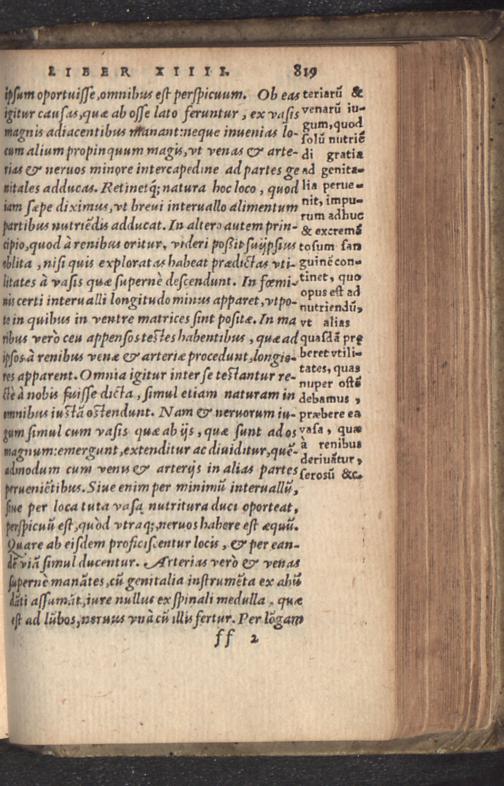 LIBER XIIII. 819
ipsum oportuisse, omnibus est perspicuum. Ob eas
igitur causas, quæ ab osse lato feruntur, ex vasis
magnis adiacentibus manant: neque inuenias lo-
cum alium propinquum magis, vt venas & arte-
rias & neruos minore intercapedine ad partes ge
nitales adducas. Retinetq; natura hoc loco, quod
iam sæpe diximus, vt breui interuallo alimentum
partibus nutriēdis adducat. In altero autem prin-
cipio, quod à renibus oritur, videri poßit suijpsius
oblita, nisi quis exploratas habeat prædictas vti-
litates à vasis quæ supernè descendunt. In fœmi-
nis certi interualli longitudo minus apparet, vtpo-
te in quibus in ventre matrices sint positæ. In ma
ribus verò ceu appensos testes habentibus, quæ ad
ipsos à renibus venæ & arteriæ procedunt, longio-
res apparent. Omnia igitur inter se testantur re-
ctè à nobis fuisse dicta, simul etiam naturam in
omnibus iustā ostendunt. Nam & neruorum iu-
gum simul cum vasis quæ ab ijs, quæ sunt ad os
magnum: emergunt, extenditur ac diuiditur, quē-
admodum cum venis & arterijs in alias partes
perueniētibus. Siue enim per minimū interuallū,
siue per loca tuta vasa nutritura duci oporteat,
perspicuū est, quòd vtraq; neruos habere est æquū.
Quare ab eisdem proficiscentur locis, & per ean-
dē viā simul ducentur. Arterias verò & venas
supernè manātes, cū genitalia instrumēta ex abū
dāti assumāt, iure nullus ex spinali medulla, quæ
est ad lūbos, neruus vnà cū illis fertur. Per lōgam
ff 2
teriarū &
venarū iu-
gum, quod
solū nutriē
di gratia
ad genita-
lia perue-
nit, impu-
rum adhuc
& excremē
tosum san
guinē con-
tinet, quo
opus est ad
nutriendū,
vt alias
quasdā præ
beret vtili-
tates, quas
nuper ostē
debamus,
præbere ea
vasa, quæ
à renibus
deriuātur,
serosū &c.